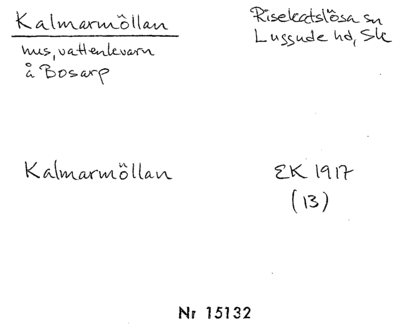 Kalmarmöllan
hus, vattenkvarn
å Bosarp
Risekatslösa sn
Luggude hd, Sk
Kalmarmöllan
EK 1917
(13)
Nr 15132